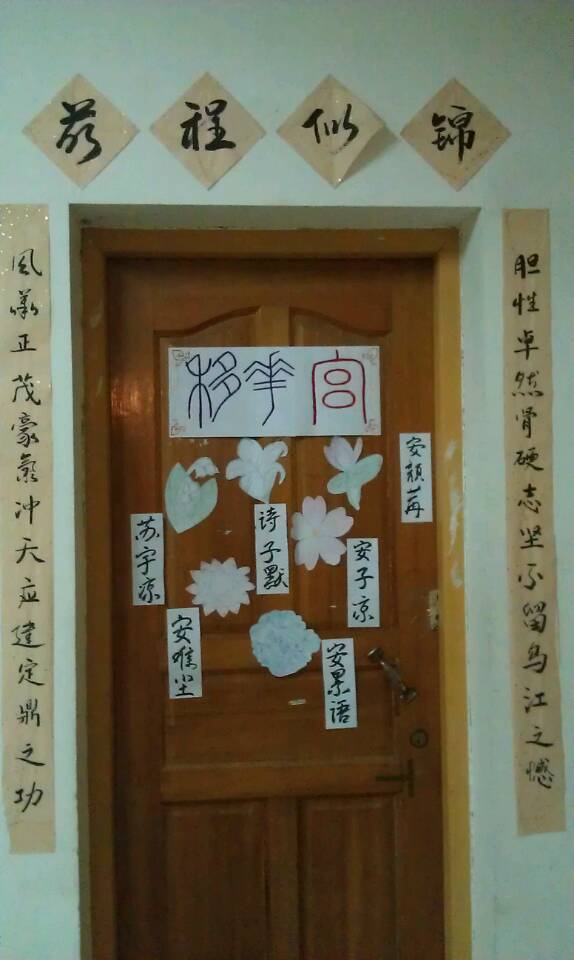 前程似锦
胆性卓然骨硬志坚不留乌江之憾
风华正茂豪氣冲天应建定鼎之功
移花宫
安颜苒
诗子默
苏宇凉
安子凉
安唯尘
安累语